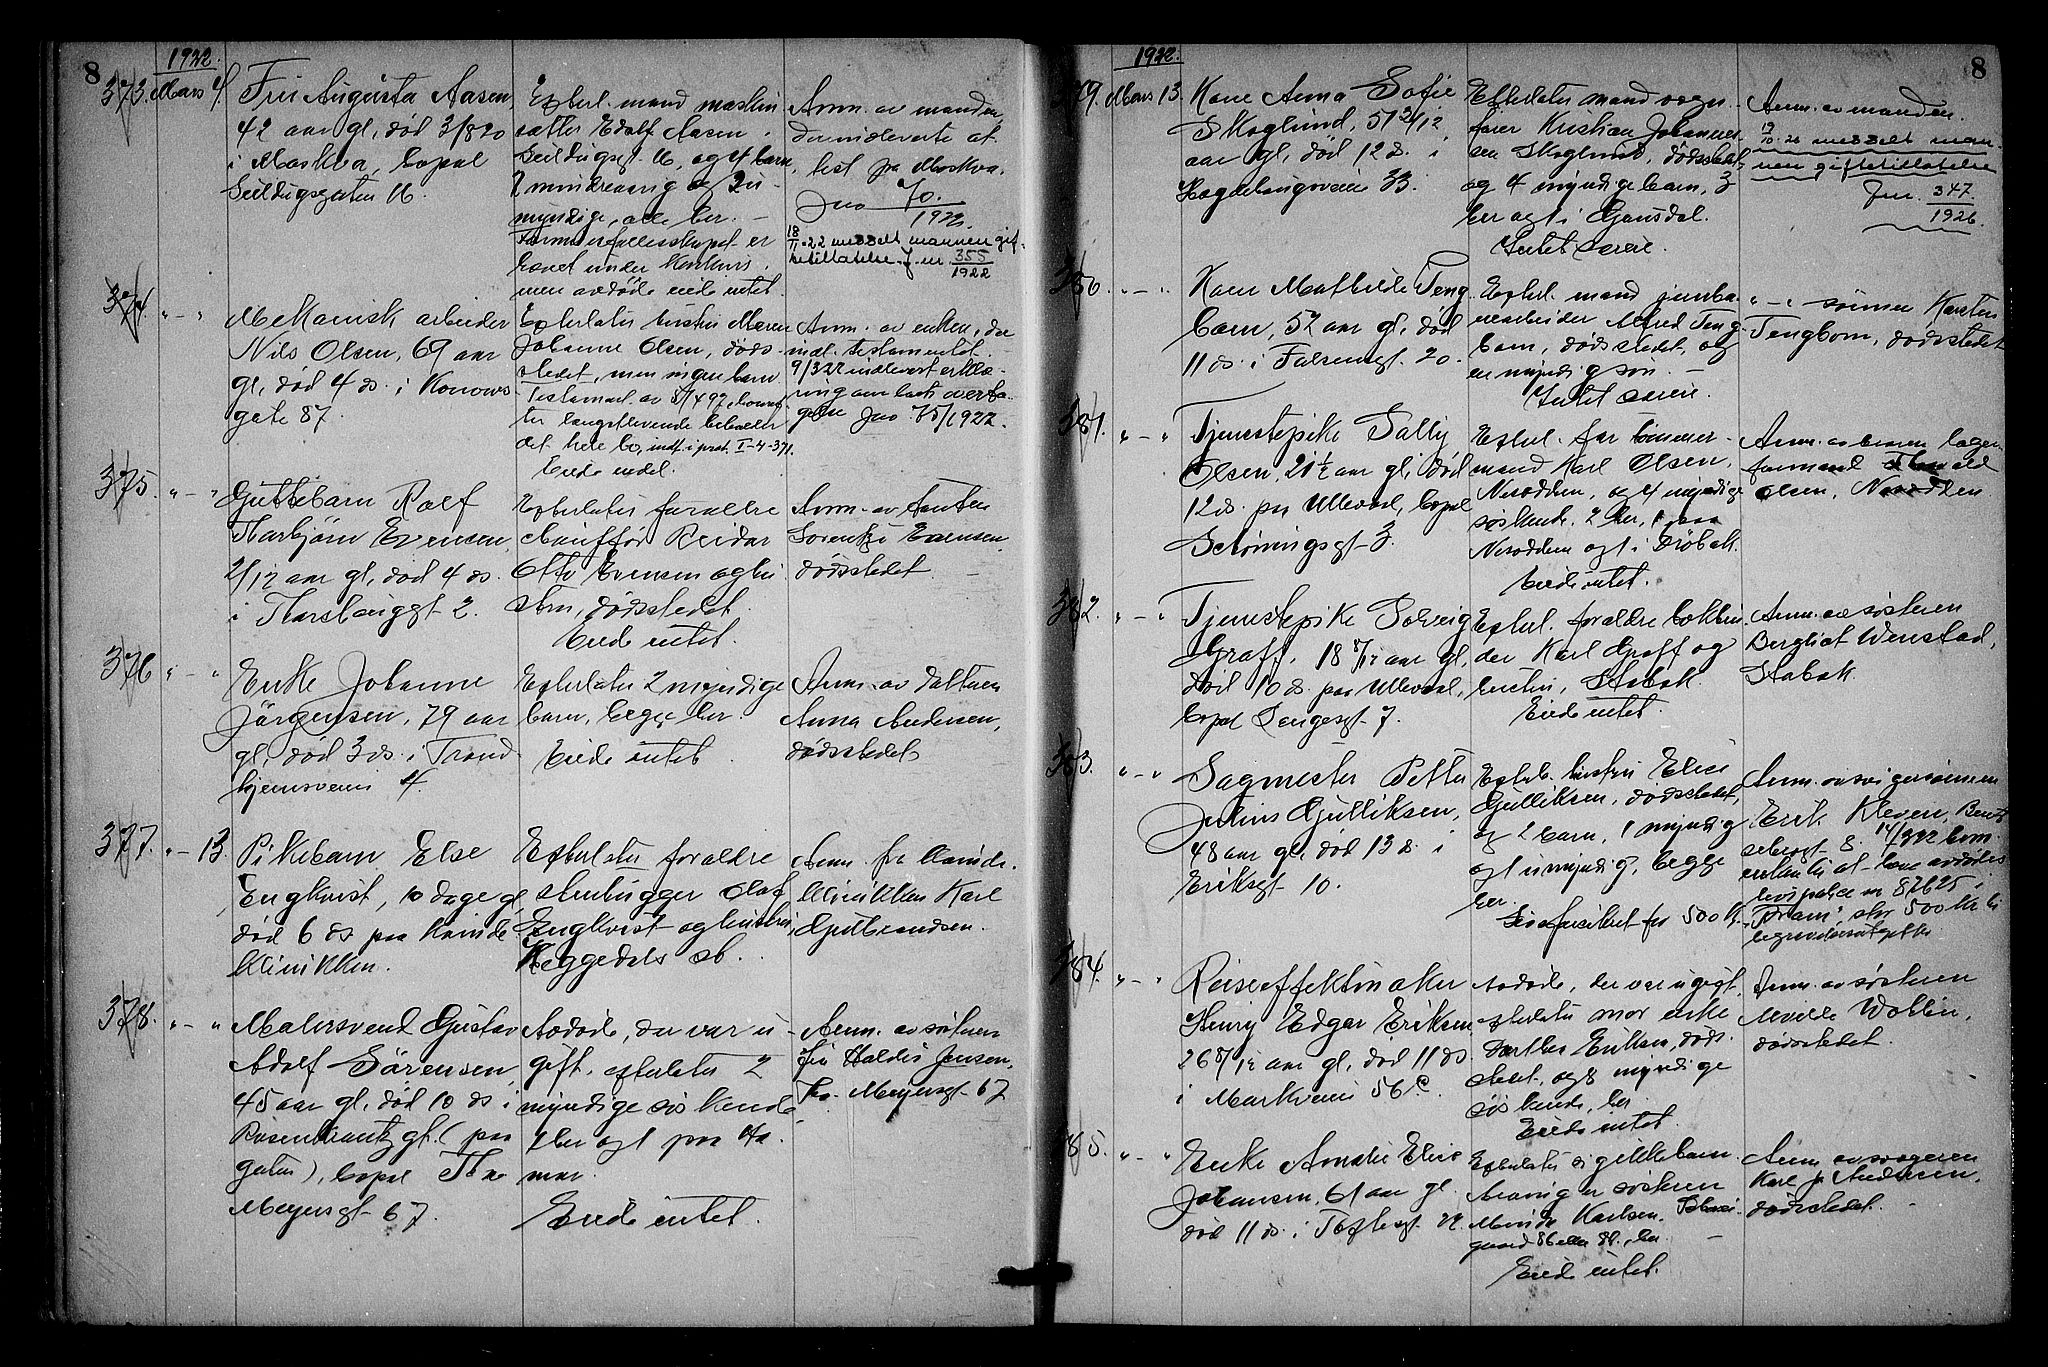 8
1922.
373. Mars 4.
Fru Augusta Aasen,
42 aar gl, död 3/8 20
i Moskva, bopæl
Seildugsgaten 16.
Efterl. mand maskin
sætter Edolf Aasen
Seildugsgt. 16, og 4 barn
2 mindreaarig og 2 u-
myndige, alle her. -
Formuesfællesskapet er
hævet under Konkurs,
men avdöde eide intet.
Anm. av manden,
der indleverte at-
test fra Moskva.
Jno 70.
1922.
18/11-22 meddelt mannen gif-
tetillatelse. J. nr. 355
1922
374. " - "
Mekanisk arbeider
Nils Olsen, 69 aar
gl, död 4 ds. i Konows
gate 87.
Efterlater hustru Maren
Johanne Olsen, döds-
stedet, men ingen barn
Testament av 8/4 97, hvoref-
ter længstlevende beholder
det hele bo, indf. i prot. I-4-371.
Eiede endel.
Anm. av enken, der
indl. testamentet.
9/3 22 indlevert erklæ-
ring om boets overta-
gelse Jno 75/1922.
375. " - "
Guttebarn Rolf
Thorbjörn Evensen,
2/12 aar gl, död 4 ds.
i Thorshauggt 2.
Efterlater forældre
chauffför Reidar
Otto Evensen og hu
stru, dödsstedet.
Eiede intet.
Anm. av tanten
Sorentze Evensen,
dödsstedet.
376 " - "
Enke Johanne
Jörgensen, 79 aar
gl, död 3 ds. i Trond
hjemsveien 4.
Efterlater 2 myndige
barn, begge her.
Eiede intet.
Anm. av datteren
Anna Andersen,
dödsstedet
377. " - 13.
Pikebarn Else
Engkvist, 10 dage gl,
död 6 ds paa Kvinde
klinikken.
Efterlater forældre
stenhugger Olaf
Engkvist og hustru,
Heggedals st.
Anm. fra Kvinde-
klinikken Karl
Gulbrandsen.
378. " - "
Malersvend Gustav
Adolf Sörensen,
45 aar gl, död 10 ds i
Rosenkrantzgt. (paa
gaten), bopæl Thv
Meyersgt 67.
Avdöde, der var u-
gift, efterlater 2
myndige söskende
1 her og 1 paa Ha-
mar.
Eiede intet.
Anm. av sösteren
fru Haldis Jensen,
Thv. Meyersgt 67
8
1922.
379. Mars 13.
Kone Anna Sofie
Skoglund, 51 2/12
aar gl, död 12 ds. i
Hagelhaugsveien 33.
Efterlater mand vogn-
förer Kristian Johannes-
sen Skoglund, dödsstedet,
og 4 myndige barn, 3
her og 1 i Gausdal.
Intet særeie.
Anm. av manden.
19/10-26 meddelt man-
nen giftetillatelse
Jnr. 347
1926.
380. " - "
Kone Mathilde Teng
bom, 52 aar gl, död
11 ds. i Falsensgt. 20.
Efterl. mand jernba-
nearbeider Alfred Teng-
bom, dödsstedet, og
en myndig sön. -
Intet særeie.
" - " sönnen Karsten
Tengbom, dödsstedet
381. " - "
Tjenestepike Sally
Olsen, 21 1/2 aar gl, död
12 ds. paa Ullevaal, bopæl
Schöningsgt 3.
Efterl. far tömmer-
mand Karl Olsen,
Nesodden, og 4 myndige
söskende, 2 her, 1 paa
Nesodden og 1 i Dröbak.
Eiede intet.
Anm. av broren lager
formand Thorvald
Olsen, Nesodden.
382. " - "
Tjenestepike Solveig
Graff, 18 8/12 aar gl,
död 10 ds. paa Ullevaal,
bopæl Sengesgt 7.
Efterl. forældre bokbin
der Karl Graff og
hustru, Stabæk.
Eiede intet.
Anm. av sösteren
Bergliot Wenstad,
Stabæk.
383. " - "
Sagmester Petter
Julius Gulliksen,
48 aar gl, död 13 ds. i
Eriksgt 10.
Efterl. hustru Elise
Gulliksen, dödsstedet,
og 2 barn, 1 myndig
og 1 umyndig, begge
her.
Livsforsikret for 500 Kr.
Anm. av svigersönnen
Erik Kleven,
14/3 22 bem.
enken til at have avdödes
livspolice nr 87625 i
"Fram", stor 500 Kr til
begravelsesutgifter
384. " - "
Reiseeffektmaker
Henry Edgar Eriksen
26 8/12 aar gl, död 11 ds.
i Markveien 56 c.
Avdöde, der var ugift,
efterlater mor enke
Dorthea Eriksen, döds-
stedet, og 8 myndige
söskende, her.
Eiede intet.
Anm. av sösteren
Mville Wollin,
dödsstedet.
385. " - "
Enke Amalie Elise
Johansen, 61 aar gl.
död 11 ds. i Toftesgt 72.
Efterlater ei gjenlebarn.
Arving er sösteren
Minda Karlsen,
gaard 86 eller 88, her. -
Eiede intet.
Anm. av svogeren
Karl J. Andersen,
dödsstedet.